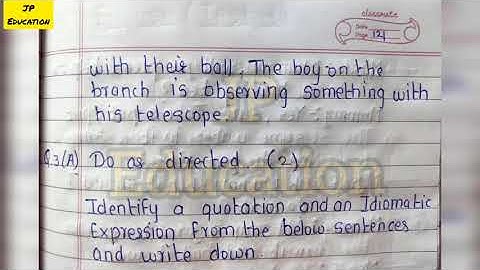 JP
EDUCATION
classmate
Date
Page 121
with their ball. The boy on the
branch is observing something with
his telescope.
Q.3(A) Do as directed. (2)
JP
Education
Identify a quotation and an Idiomatic
Expression from the below sentences
and write down.